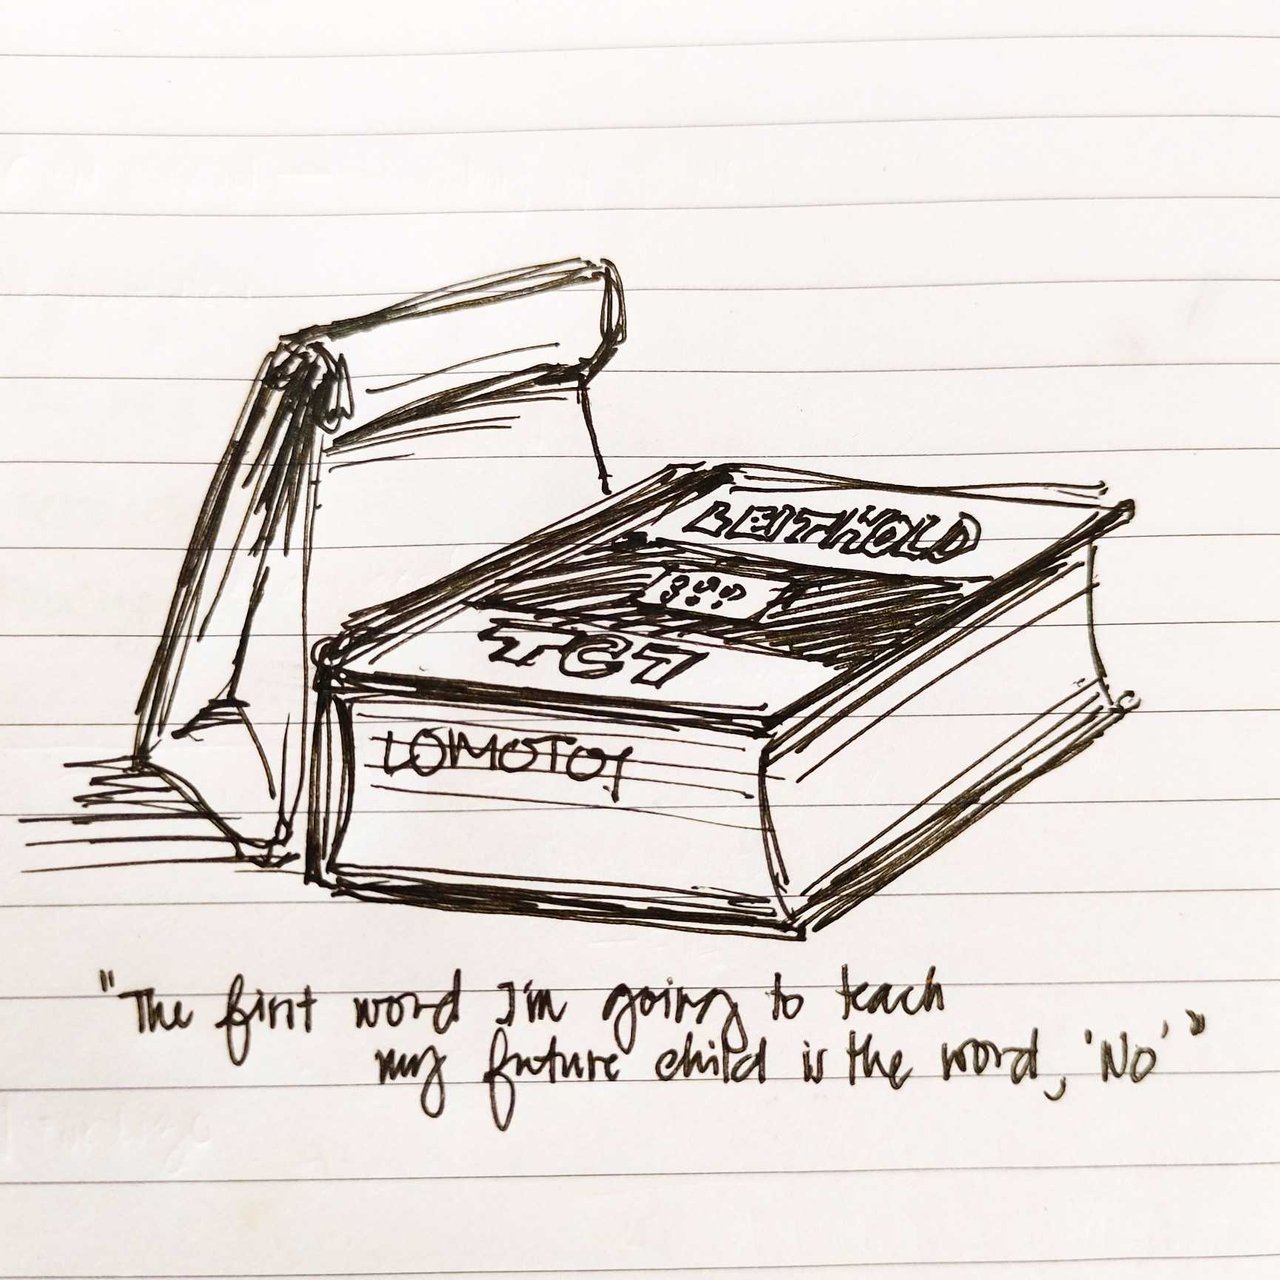 LEITHOLD
TC7
LOMOTOY
"The first word I'm going to teach
my future child is the word, 'No'"